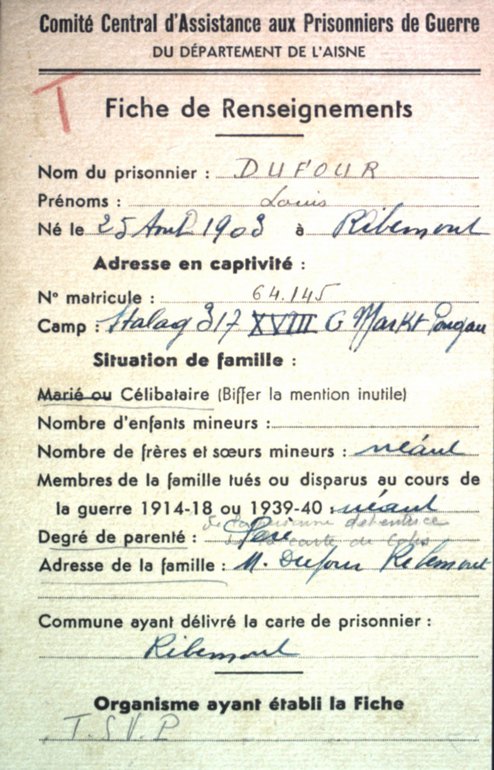 Comité Central d'Assistance aux Prisonniers de Guerre
DU DÉPARTEMENT DE L'AISNE
T
Fiche de Renseignements
Nom du prisonnier : DUFOUR
Prénoms : Louis
Né le 25 Août 1903 à Ribemont
Adresse en captivité :
N° matricule : 64.145
Camp : Stalag 317 XVIII C Markt Pongau
Situation de famille :
Marié ou Célibataire (Biffer la mention inutile)
Nombre d'enfants mineurs :
Nombre de frères et sœurs mineurs : néant
Membres de la famille tués ou disparus au cours de
la guerre 1914-18 ou 1939-40 : néant
de la personne détentrice
Degré de parenté : Père de la carte de colis
Adresse de la famille : M. Dufour Ribemont
Commune ayant délivré la carte de prisonnier :
Ribemont
Organisme ayant établi la Fiche
T.S.V.P